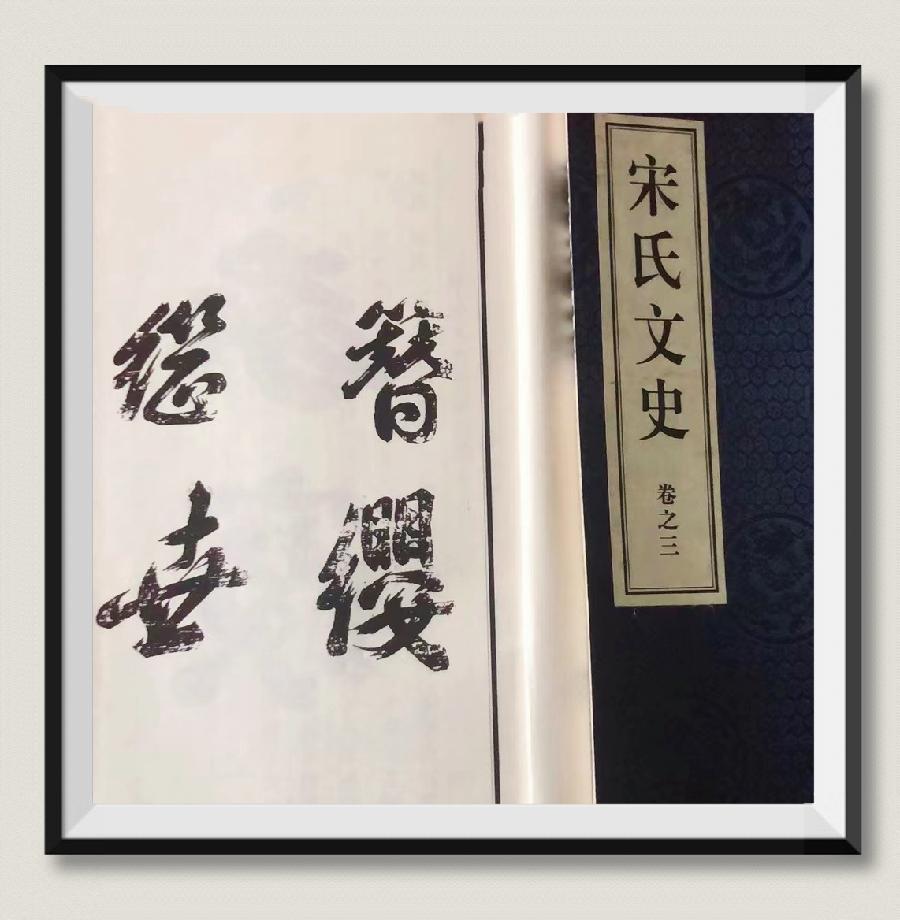 宋氏文史
卷之三
簪纓
継世